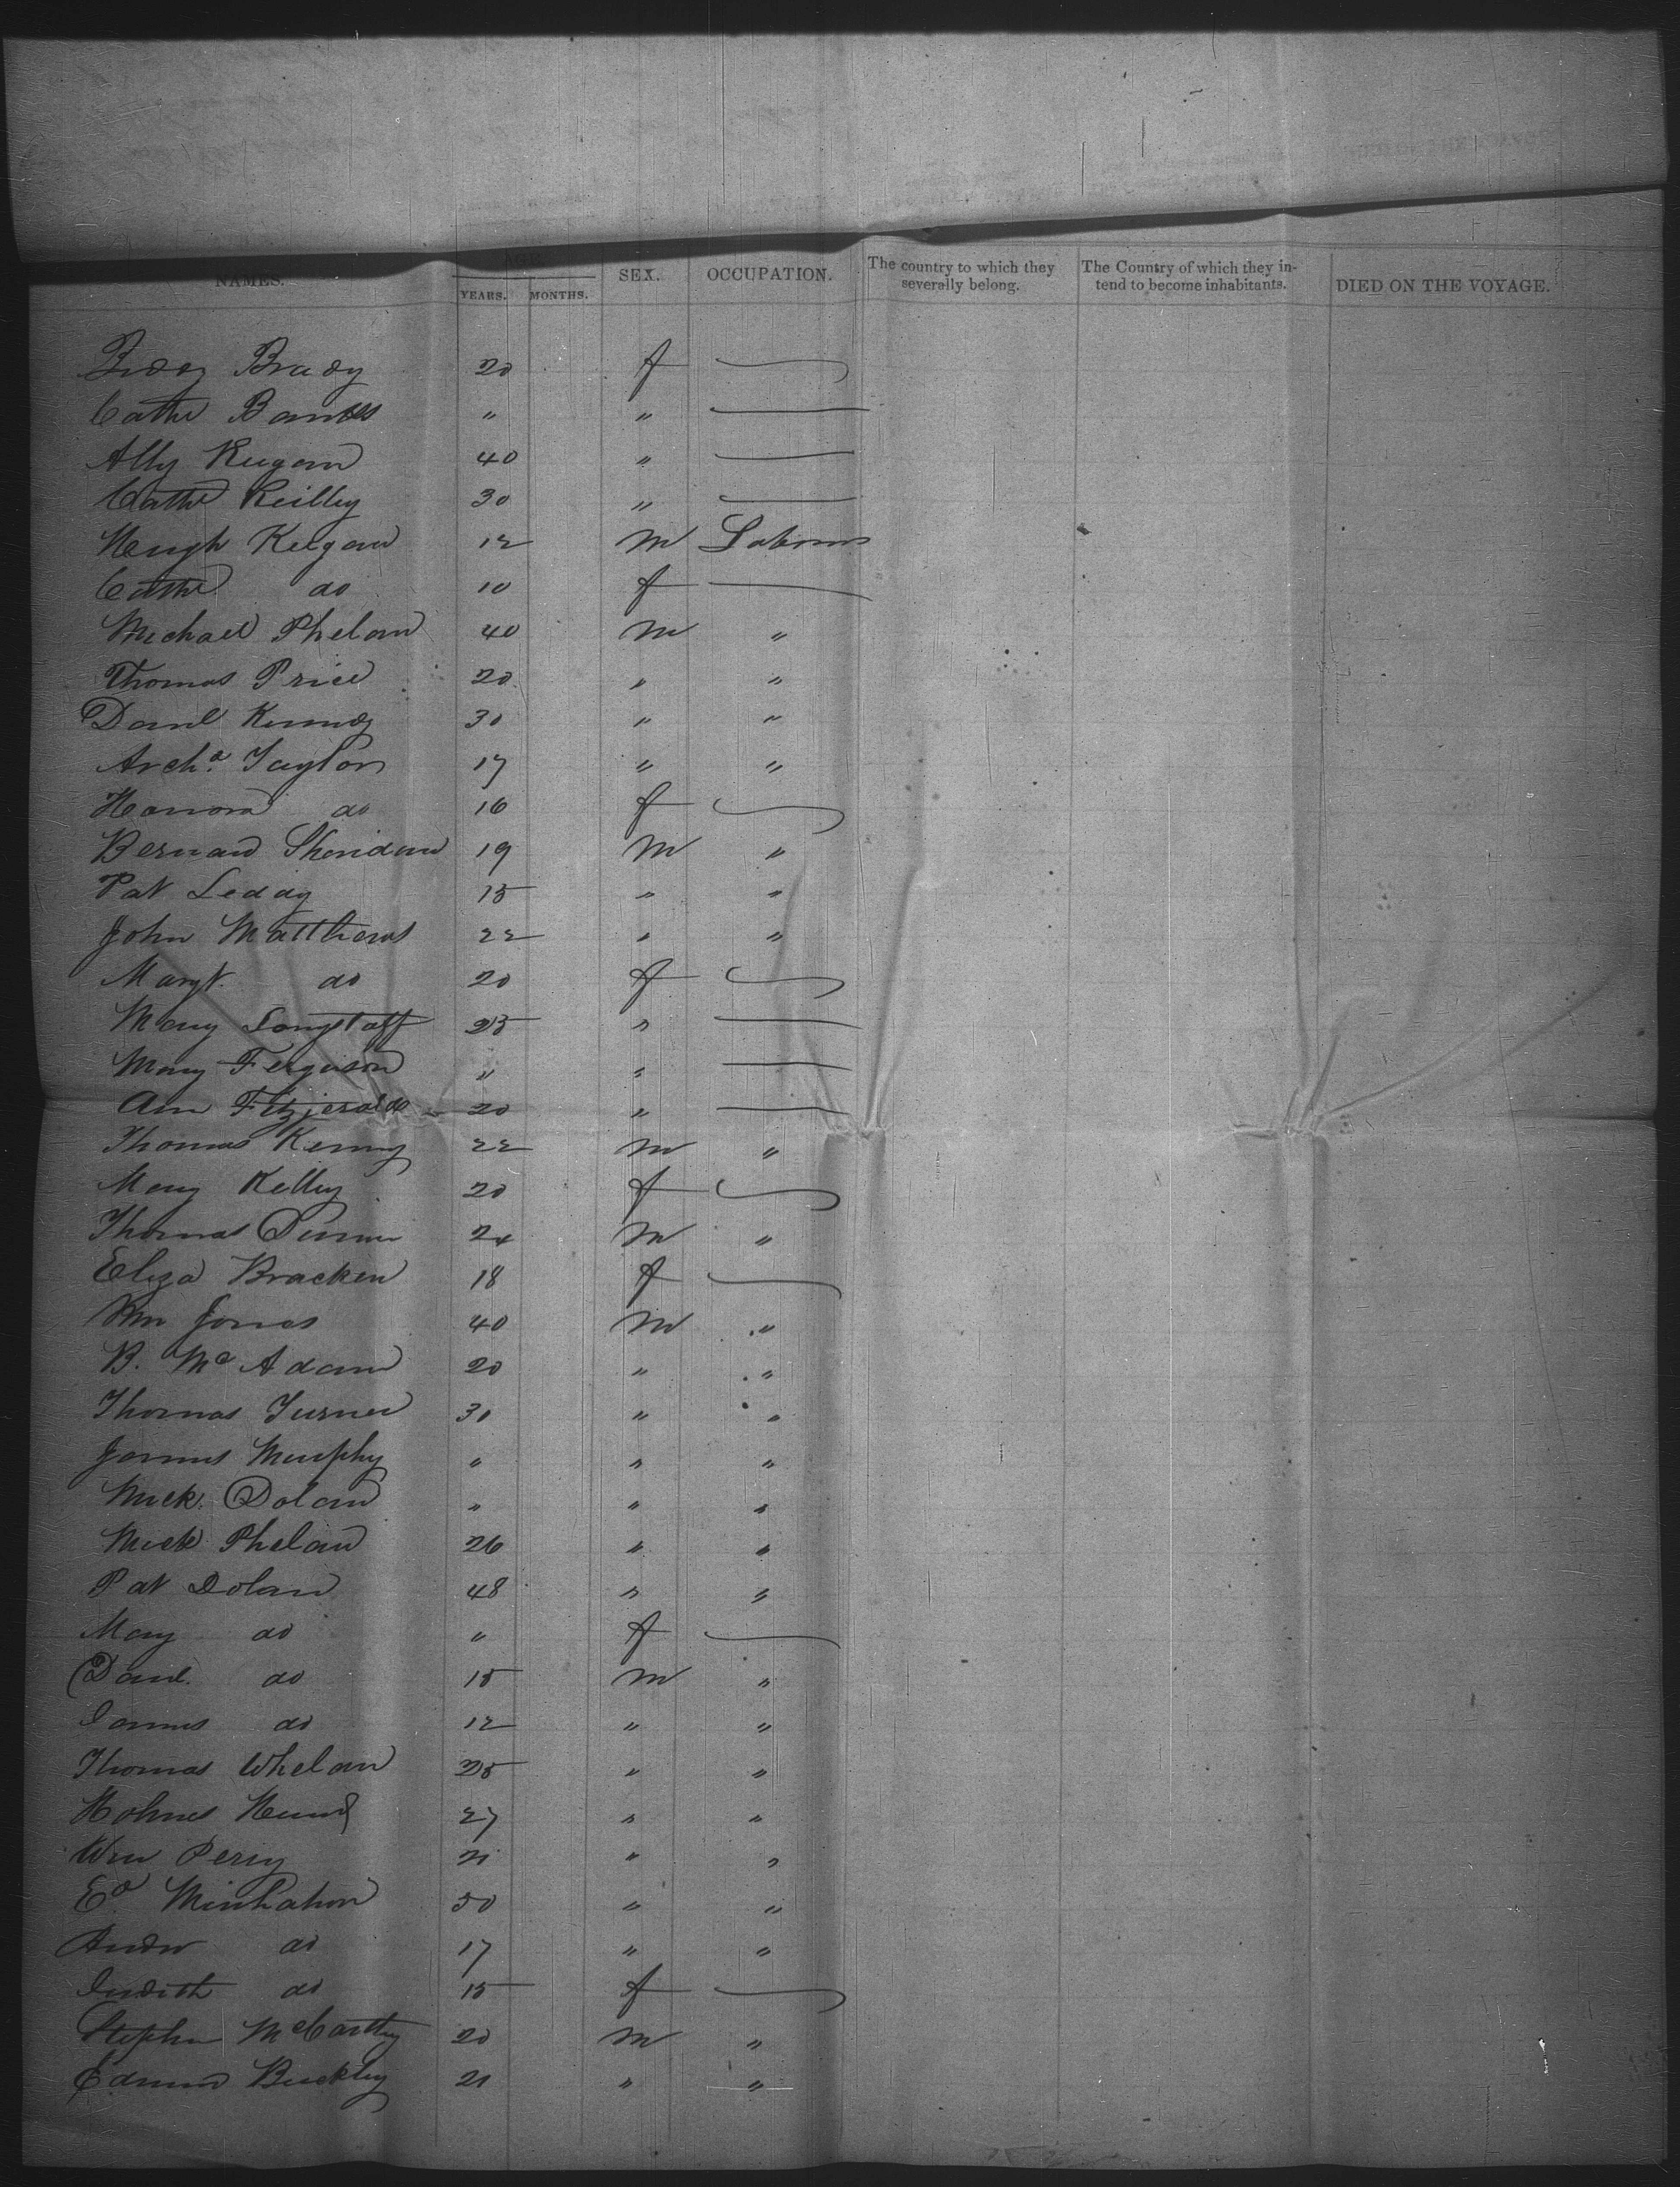 NAMES. AGE. YEARS. MONTHS. SEX. OCCUPATION. The country to which they severally belong. The Country of which they intend to become inhabitants. DIED ON THE VOYAGE.
Brady 20 f
Cathe " "
Ally Keegan 40 "
Cathe Reilley 30 "
Hugh Keegan 12 m Labourers
Cathe do 10 f
Michael Phelan 40 m "
Thomas Price 20 " "
Danl Kennedy 30 " "
Archd. Taylor 17 " "
Honora do 16 f
Bernard Sheridan 19 m "
Pat Leddy 15 " "
John Matthews 22 " "
Margt. do 20 f
Mary Longstaff 25 "
Mary Ferguson " "
Ann Fitzjerald 20 "
Thomas Kenny 22 m "
Mary Kelley 20 f
Thomas 24 m "
Eliza Bracken 18 f
Wm Jones 40 m "
B. Mc Adam 20 " "
Thomas Turner 30 " "
James Murphy " " "
Mick. Dolan " " "
Mick Phelan 26 " "
Pat Dolan 48 " "
Mary do " f
Danl. do 15 m "
James do 12 " "
Thomas Whelan 25 " "
Holmes 27 " "
Wm Perry 21 " "
Ed. 50 " "
Andw do 17 " "
Judith do 15 f
Stephen McCarthy 20 m "
Edmund Buckley 21 " "